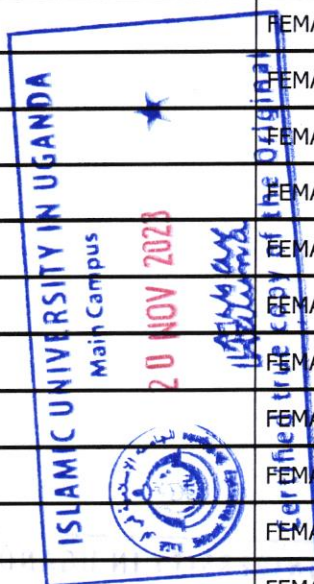 ISLAMIC UNIVERSITY IN UGANDA
Main Campus
20 NOV 2023
Certified true copy of the Original
FEMA
FEMA
FEMA
FEMA
FEMA
FEMA
FEMA
FEMA
FEMA
FEMA
FEMA